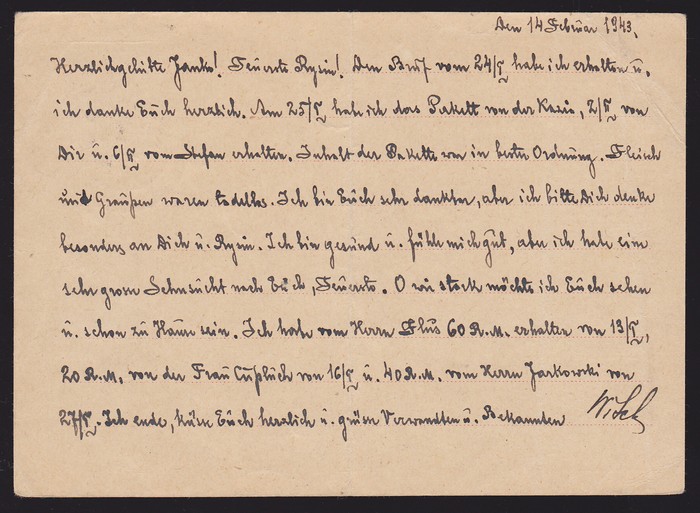 Den 14 Februar 1943.
Herzlichgeliebte Janko! Teuerste Rysin! Den Brief vom 24/I habe ich erhalten u.
ich danke Euch herzlich. Am 25/I habe ich das Pakett von der Kazia, 2/II von
Dir u. 6/II vom Stefan erhalten. Inhalt der Pakette war in bester Ordnung. Fleisch
und Graupen waren tadellos. Ich bin Euch sehr dankbar, aber ich bitte Dich denke
besonders an Dich u. Rysin. Ich bin gesund u. fühle mich gut, aber ich habe eine
sehr grosse Sehnsucht nach Euch, Teuerste. O wie stark möchte ich Euch sehen
u. schon zu Hause sein. Ich habe vom Herrn 60 R.M. erhalten von 13/I,
20 R.M. von der Frau von 16/I u. 40 R.M. vom Herrn Jarkowski von
27/I. Ich ende, küsse Euch herzlich u. grüsse Verwandten u. Bekannten